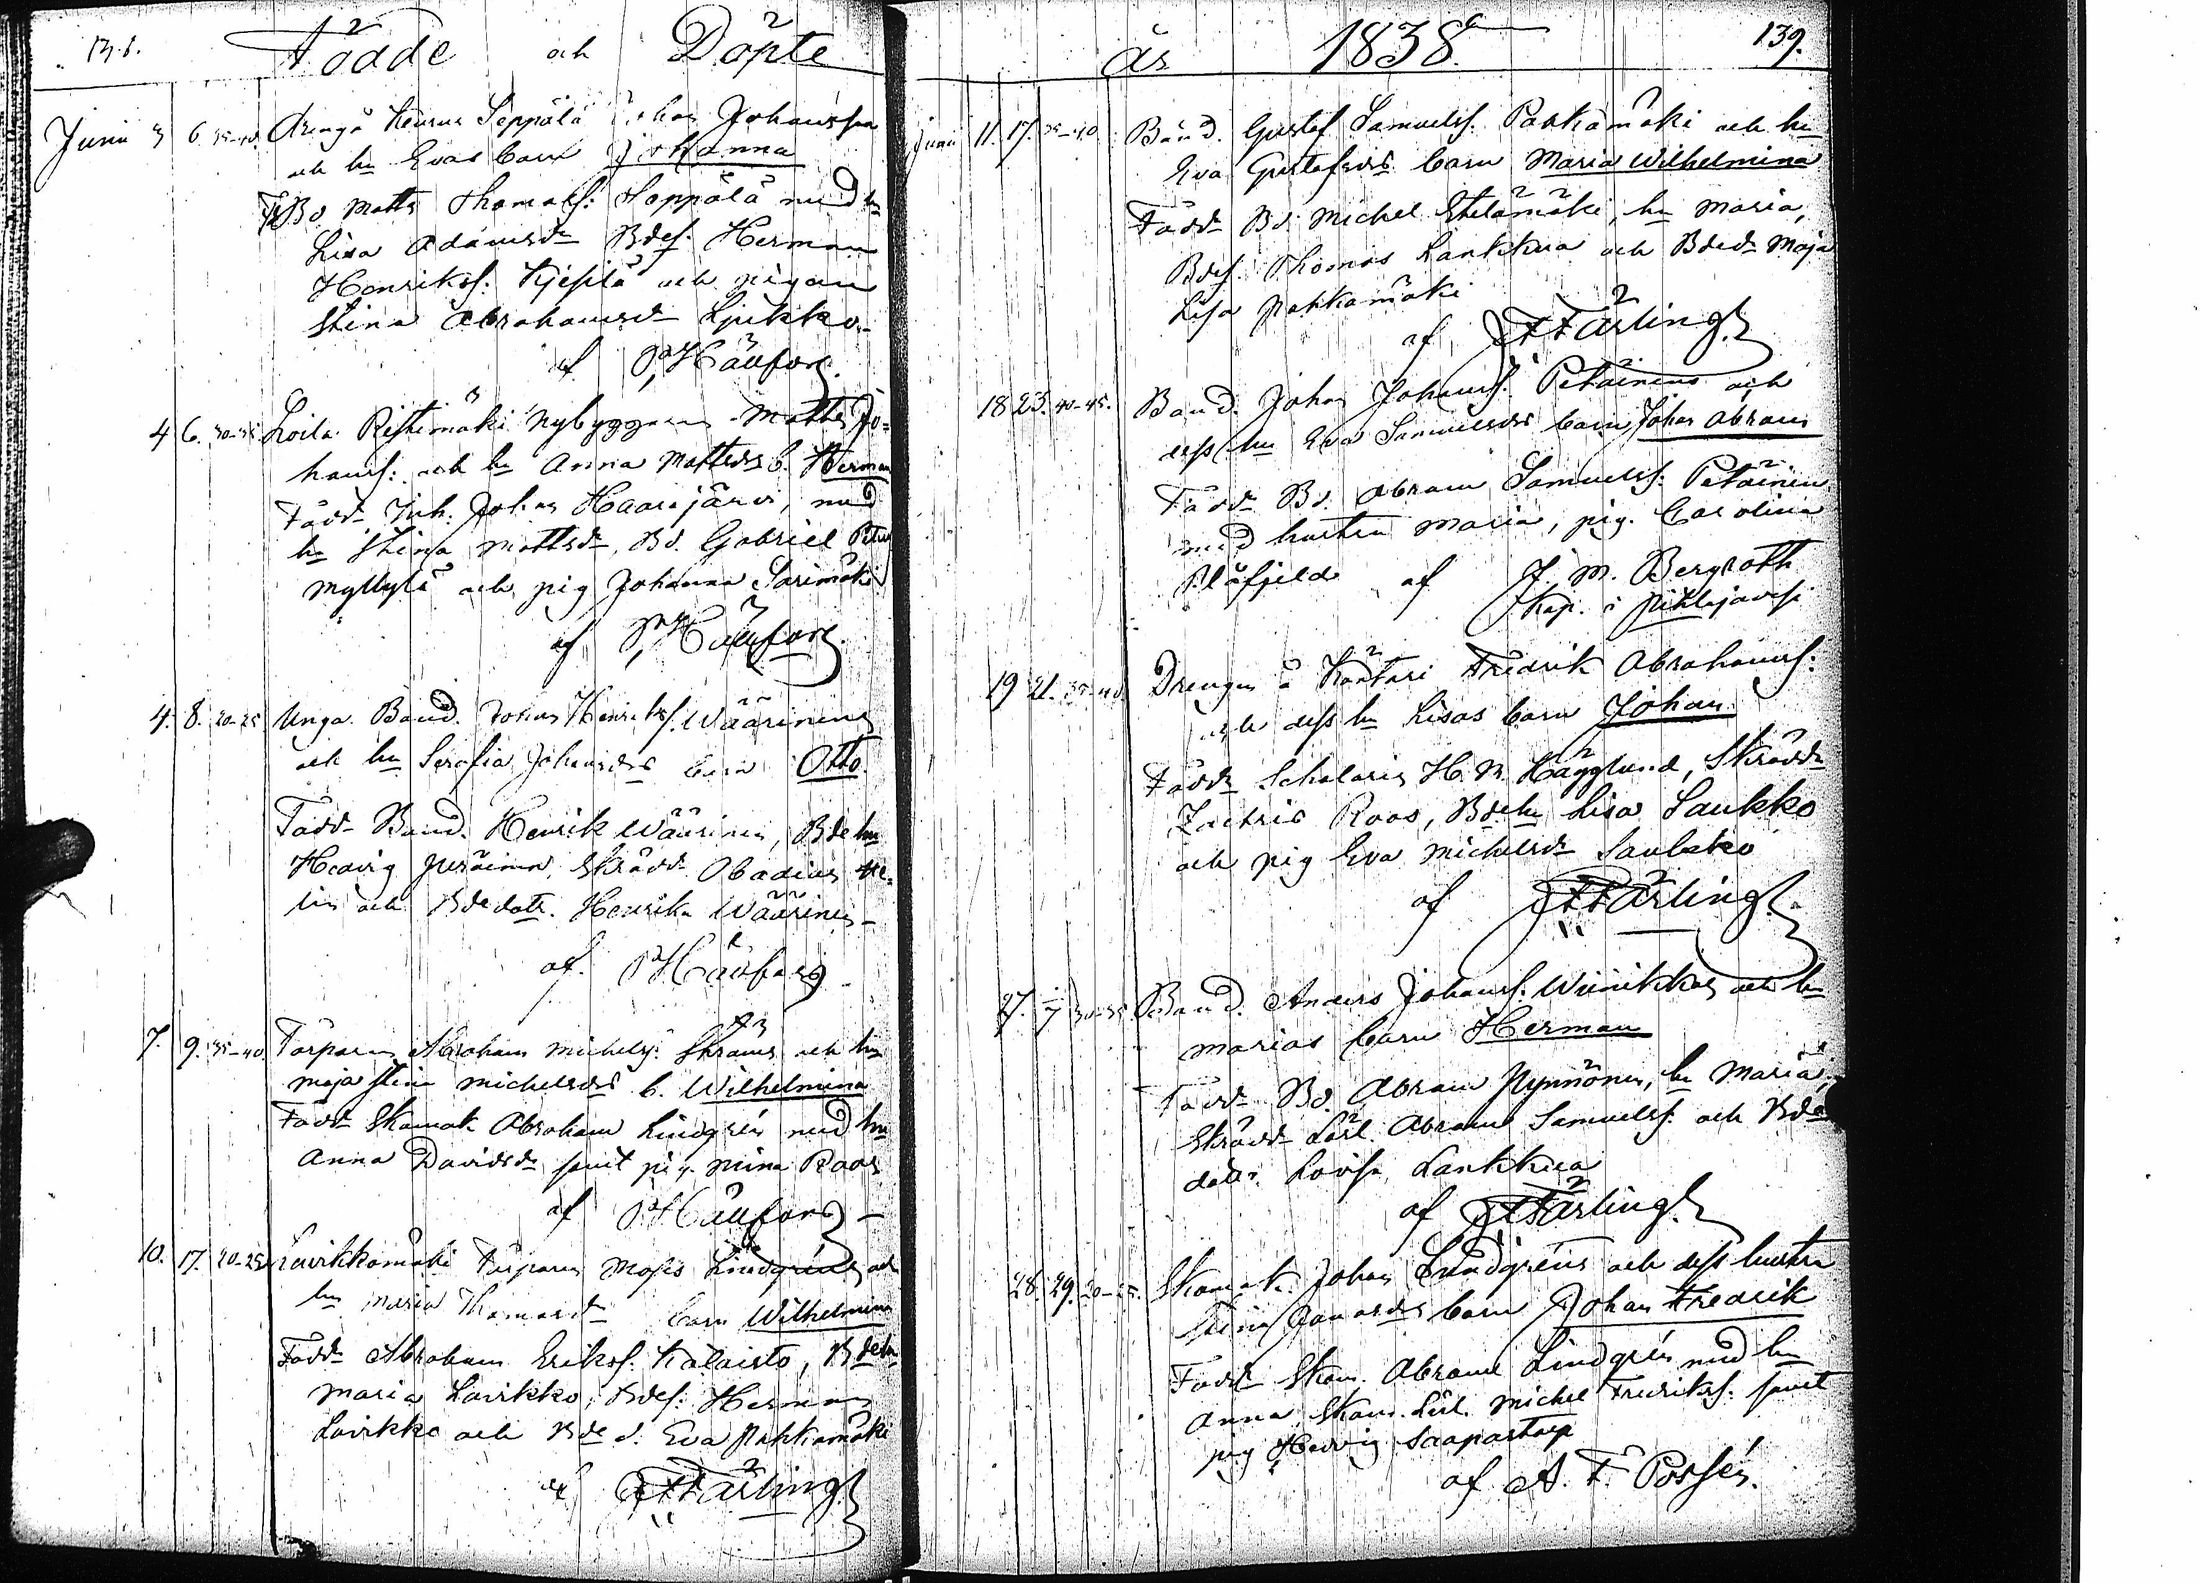 138. Födde och Döpte
Junii 3 6. 35-40. Drengs Seppälä Johan Johansson
och hu Evas barn Johanna
F. Bd Matts Thomass: Seppälä med hu
Lisa Adamsdr Bdes. Herman
Henrikss: och pigan
Stina Abrahamsdr Ljukko
af
4 6. 30-35 Loila Ristimäki Nybyggaren Matts Jo=
hanss: och hu Anna Mattsdrs b. Herman
Fadd. Inh. Johan Haarajärvi, med
hu Stina Mattsdr, Bd. Gabriel
Myllylä och pig Johanna Sarimäki
af
4. 8. 20-25 Unga Bond. Henrikss. Wäärinens
och hu Serafia Johansdrs barn Otto.
Fadd. Bond. Henrik Wäärinen, Bde hu
Hedvig, Skrädd. Obadias
och Bdedotr. Henrika Wäärinen
af.
7. 9. 35-40. Torparen Abraham Michelss: och hu
Maja Stina Michelsdrs b. Wilhelmina
Fadd. Skomak Abraham Lindgrén med hu
Anna Davidsdr, samt pig. Mina Roos
af
10. 17. 20-25. Lavikkomäki Torparen Moses Lindgréns och
hu Maria Thomasdr barn Wilhelmina
Fadd. Abraham Erikss. Kalaisto, Bdehu
Maria Lavikko, Bdes: Herman
Lavikko och Bde d. Eva Pahkamäki
af Färling
år 1838. 139.
Junii 11. 17. 35-40 Bond. Gustaf Samuelss. Pahkamäki och hu
Eva Gustafsdrs barn Maria Wilhelmina
Fadd. Bd. Michel Etelämäki, hu Maria,
Bdes. Thomas Lankkua och Bdedr Maja
Lisa Pahkamäki
af Färling
18 23. 40-45. Bond. Johan Johanss. Petäinens och
dess hu Eva Samuelsdrs barn Johan Abram
Fadd. Bd. Abram Samuelss. Petäinen
med hustru Maria, pig. Carolina
Blåfjeld af J. M. Bergroth
Kap. i Pihlajavesi
19 21. 35-40 Drengen å Kantari Fredrik Abrahamss:
och dess hu Lisas barn Johan
Fadd. Scholaris H. Hägglund, Skrädd.
Zachris Roos, Bdehu Lisa Saukko
och pig Eva Michelsdr Saukko
af Färling
27. 30-35 Bond. Anders Johanss. Wiinikkas och hu
Marias barn Herman
Fadd. Bd. Abram Pynnönen, hu Maria,
Skrädd. Lärl. Abram Samuelss. och Bde
dotr. Lovisa Lankkua
af Färling
28. 29. 20-25. Skomak. Johan Lundgréns och dess hustru
Stina barn Johan Fredrik
Fadd. Skom. Abram Lindgrén med hu
Anna, Skom. Lärl. Michel Fredrikss. samt
pig Hedvig Saapastorp
af A. F. Possén.